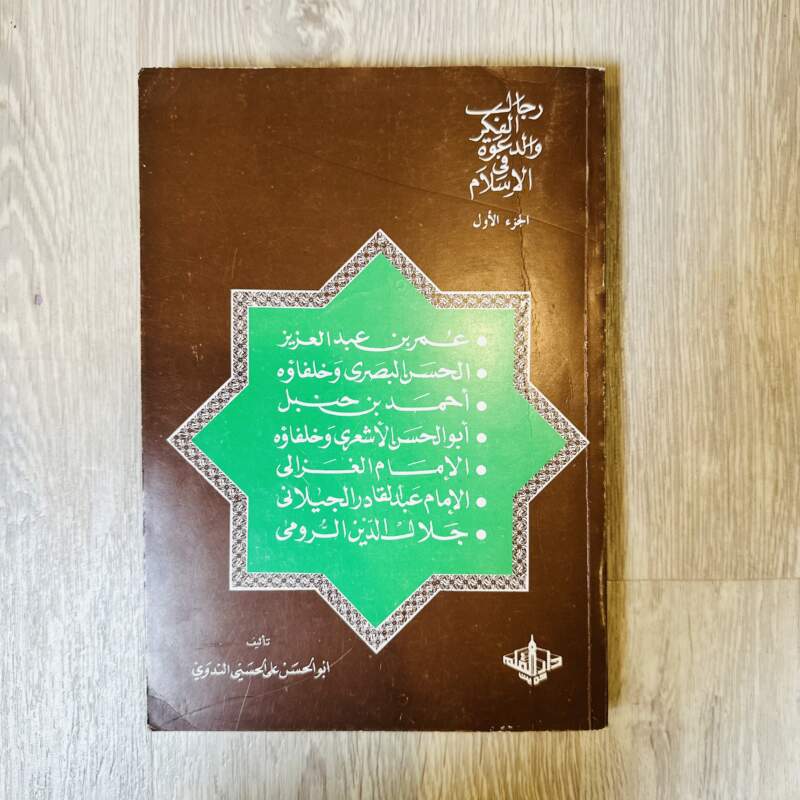 رجال
الفكر
والدعوة
في
الإسلام
الجزء الأول
• عمر بن عبد العزيز
• الحسن البصرى وخلفاؤه
• أحمد بن حنبل
• أبو الحسن الأشعرى وخلفاؤه
• الإمام الغزالى
• الإمام عبد القادر الجيلانى
• جلال الدين الرومى
تأليف
ابو الحسن على الحسيني الندوي
دار القلم
كويت